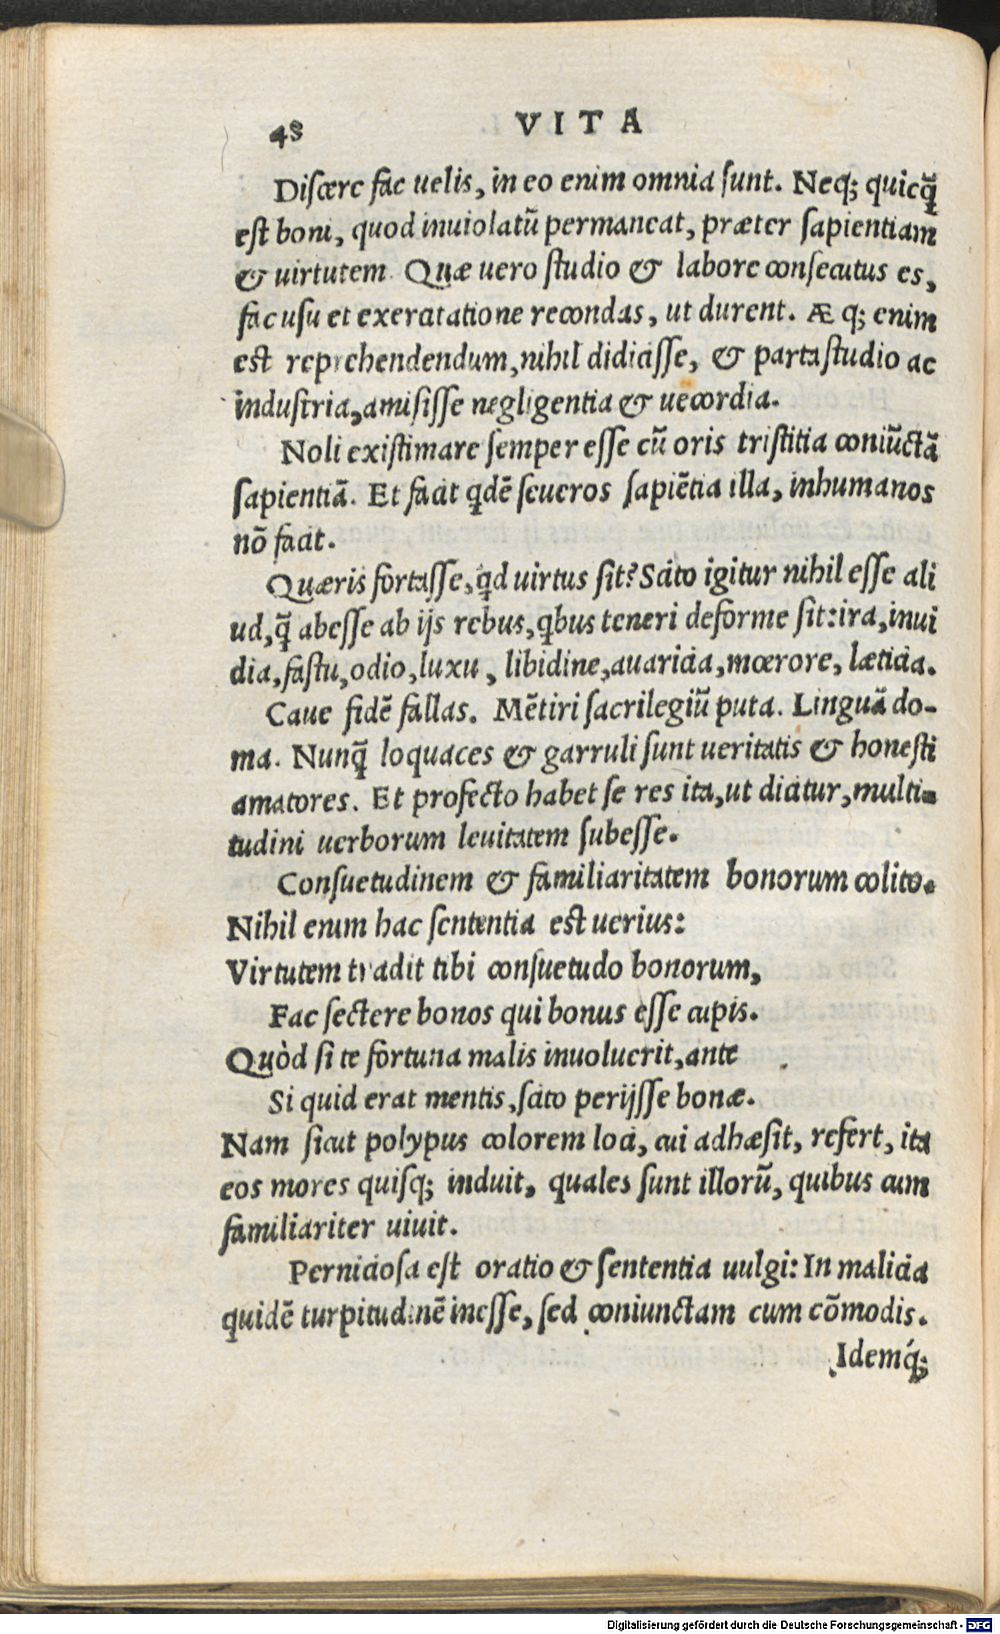 48 VITA
Discere fac uelis, in eo enim omnia sunt. Neq; quicq̃
est boni, quod inuiolatũ permaneat, præter sapientiam
& uirtutem. Quæ uero studio & labore consecutus es,
fac usu et exercitatione recondas, ut durent. Æ q; enim
est reprehendendum, nihil didicisse, & parta studio ac
industria, amisisse negligentia & uecordia.
Noli existimare semper esse cũ oris tristitia coniũctã
sapientiã. Et facit qdẽ seueros sapiẽtia illa, inhumanos
nõ facit.
Quæris fortasse, qd uirtus sit? Scito igitur nihil esse ali
ud, q̃ abesse ab ijs rebus, qbus teneri deforme sit: ira, inui
dia, fastu, odio, luxu, libidine, auaricia, mœrore, læticia.
Caue fidẽ fallas. Mẽtiri sacrilegiũ puta. Linguã do-
ma. Nunq̃ loquaces & garruli sunt ueritatis & honesti
amatores. Et profecto habet se res ita, ut dicitur, multi-
tudini uerborum leuitatem subesse.
Consuetudinem & familiaritatem bonorum colito.
Nihil enim hac sententia est uerius:
Virtutem tradit tibi consuetudo bonorum,
Fac sectere bonos qui bonus esse cupis.
Quòd si te fortuna malis inuoluerit, ante
Si quid erat mentis, scito perijsse bonæ.
Nam sicut polypus colorem loci, cui adhæsit, refert, ita
eos mores quisq; induit, quales sunt illorũ, quibus cum
familiariter uiuit.
Perniciosa est oratio & sententia uulgi: In malicia
quidẽ turpitudinẽ inesse, sed coniunctam cum cõmodis.
Idemq́;
Digitalisierung gefördert durch die Deutsche Forschungsgemeinschaft - DFG